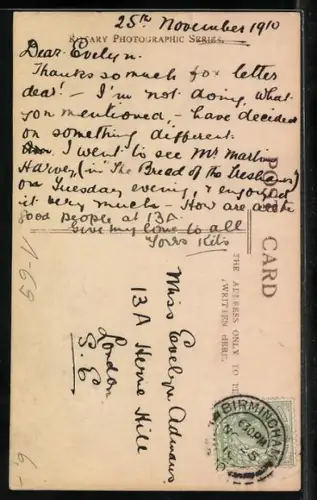 25th November 1910
ROTARY PHOTOGRAPHIC SERIES.
Dear Evelyn.
Thanks so much for letter
dear! – I'm not doing, what
you mentioned, – have decided
on something different.
I went to see Mr Martin
Harvey, (in The Bread of the Treshams)
on Tuesday evening, & enjoyed
it very much – How are all the
good people at 13A.
Give my love to all
Yours Kits
POST CARD
THE ADDRESS ONLY TO BE
WRITTEN HERE.
Miss Evelyn Admans
13A Herne Hill
London
S.E.
BIRMINGHAM
6 30 PM
NO 25
10
1-69
6,-